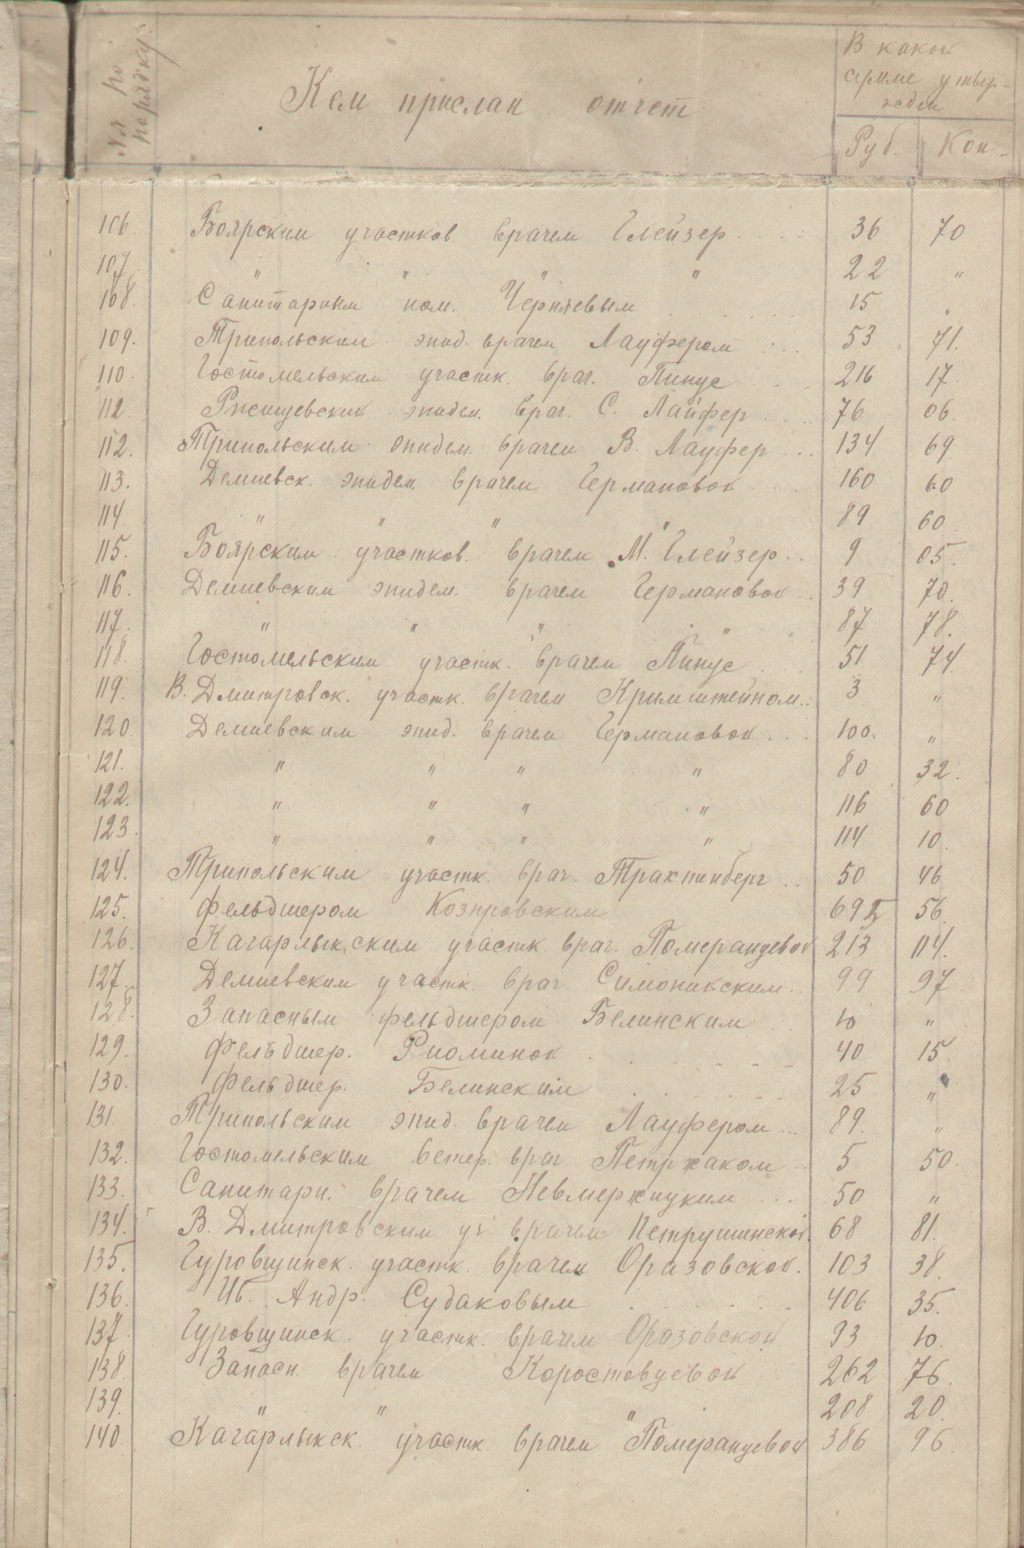 №№ по порядку
Кем прислан отчет
В какой сумме утвержден
Руб. Коп.
106. Боярским участков. врачем Глейзер 36 70
107. " " " " 22 "
108. Санитарным пом. Черняевым 15 "
109. Трипольским эпид. врачем Лауфером 53 71.
110. Гостомельским участк. врач. Пинус 216 17.
112. Ржищевским эпидем. врач. С. Лайфер 76 06.
112. Трипольским эпидем. врачем В. Лауфер 134 69
113. Демиевск. эпидем. врачем Германовой 160 60
114. " " " " 89 60.
115. Боярским участков. врачем М. Глейзер 9 05.
116. Демиевским эпидем. врачем Германовой 39 70.
117. " " " " 87 78.
118. Гостомельским участк. врачем Пинус 51 74
119. В. Дмитровск. участк. врачем Кримштейном 3 "
120. Демиевским эпид. врачем Германовой 100. "
121. " " " " 80 32.
122. " " " " 116 60
123. " " " " 114 10.
124. Трипольским участк. врач. Трахтенберг 50 46
125. Фельдшером 692 56.
126. Кагарлыкским участк врач. Померанцевой 213 04.
127. Демиевским участк. врач. 99 97
128. Запасным фельдшером Белинским 10 "
129. Фельдшер. 40 15.
130. Фельдшер. Белинским 25 "
131. Трипольским эпид. врачем Лауфером 89. "
132. Гостомельским ветер. врач Петржаком 5 50.
133. Санитарн. врачем Невмержицким 50 "
134. В. Дмитровским уч. врачем Петрушинской 68 81.
135. Гуровщинск. участк. врачем Оразовской. 103 38.
136. Ив. Андр. Судаковым 406 35.
137. Гуровщинск. участк. врачем Орозовской 93 10.
138. Запасн. врачем Коростовцевой 262 76.
139. " " " 208 20.
140 Кагарлыкск. участк. врачем Померанцевой 386 96.